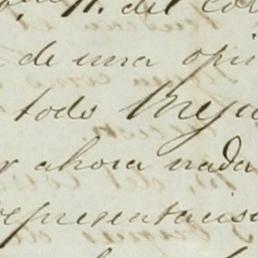 del
de una opi
todo Mejo
ahora nada
representacio